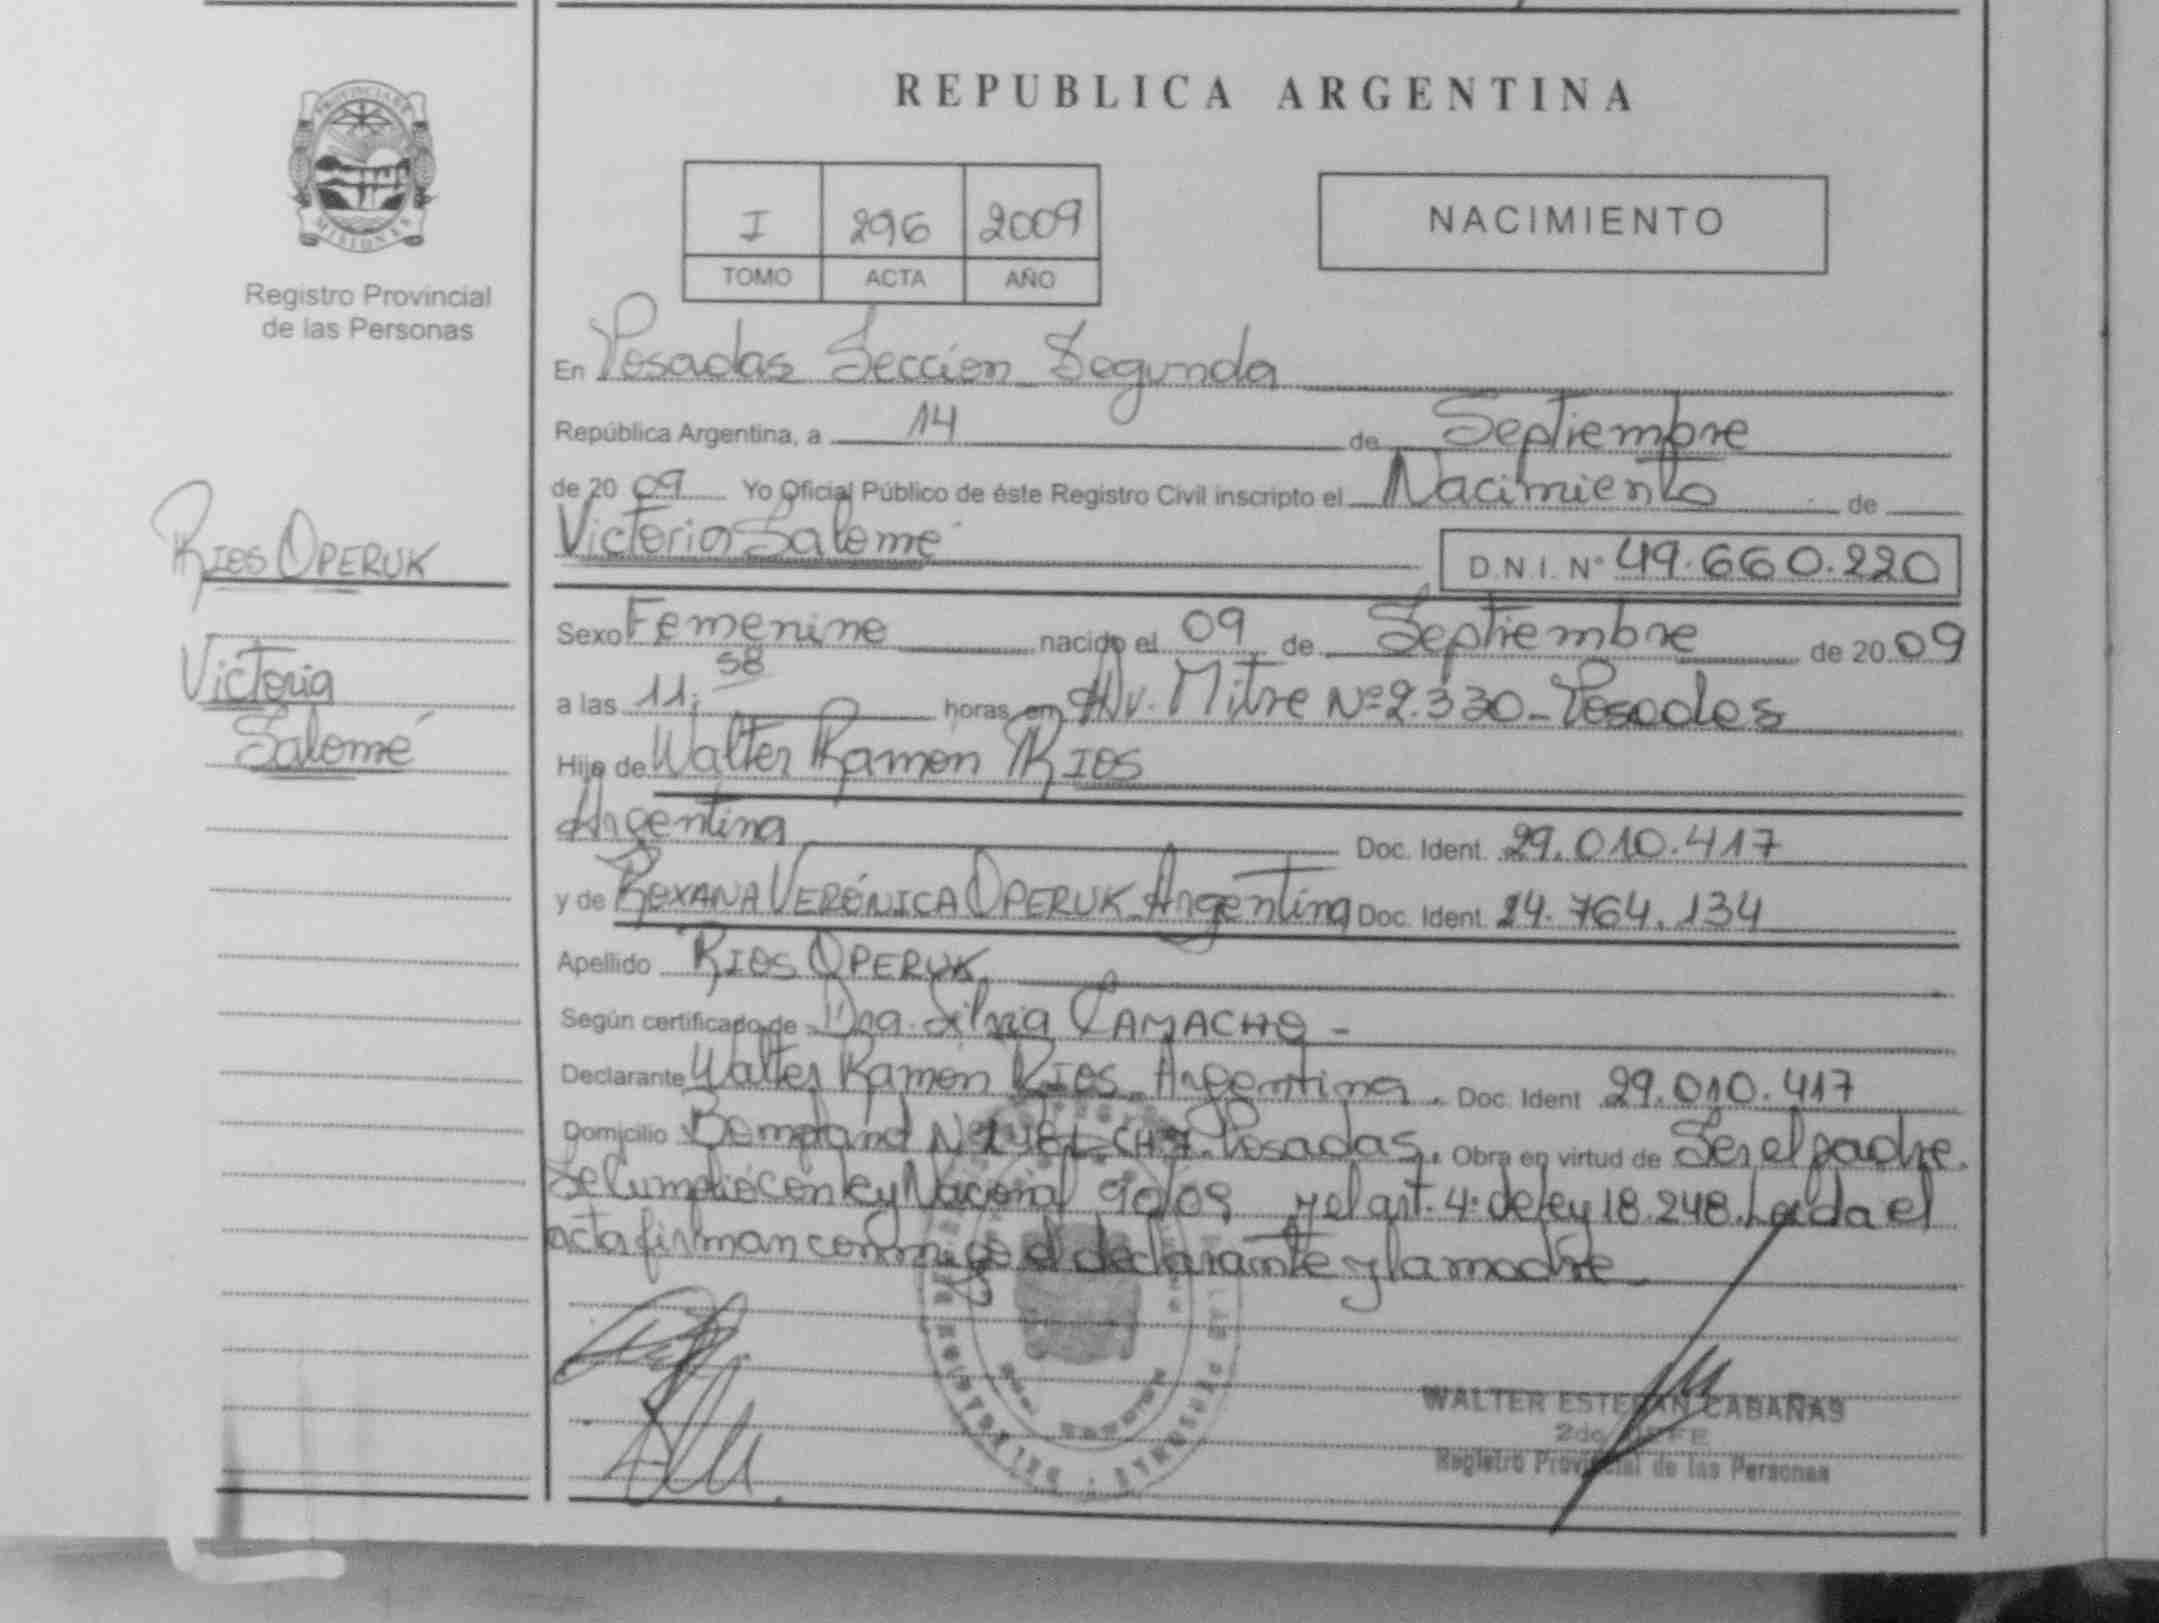 REPUBLICA ARGENTINA
PROVINCIA DE
MISIONES
Registro Provincial
de las Personas
I 296 2009
TOMO ACTA AÑO
NACIMIENTO
En Posadas Sección Segunda
República Argentina, a 14 de Septiembre
de 20 09 Yo Oficial Público de éste Registro Civil inscripto el Nacimiento de
Victoria Salomé
D.N.I. Nº 49.660.220
RIOS OPERUK
Victoria
Salomé
Sexo Femenino nacido el 09 de Septiembre de 20 09
a las 11:58 horas en Av. Mitre Nº 2.330 - Posadas
Hijo de Walter Ramon RIOS
Argentina Doc. Ident. 29.010.417
y de ROXANA VERÓNICA OPERUK Argentina Doc. Ident. 24.764.134
Apellido RIOS OPERUK
Según certificado de Dra. Silvia CAMACHO -
Declarante Walter Ramón RIOS Argentina. Doc. Ident 29.010.417
Domicilio Bompland Posadas. Obra en virtud de Ser el padre.
Se cumplió con ley Nacional y el art. 4º de ley 18.248. Leída el
acta firman conmigo el declarante y la madre
WALTER ESTEBAN CABAÑAS
2do JEFE
Registro Provincial de las Personas